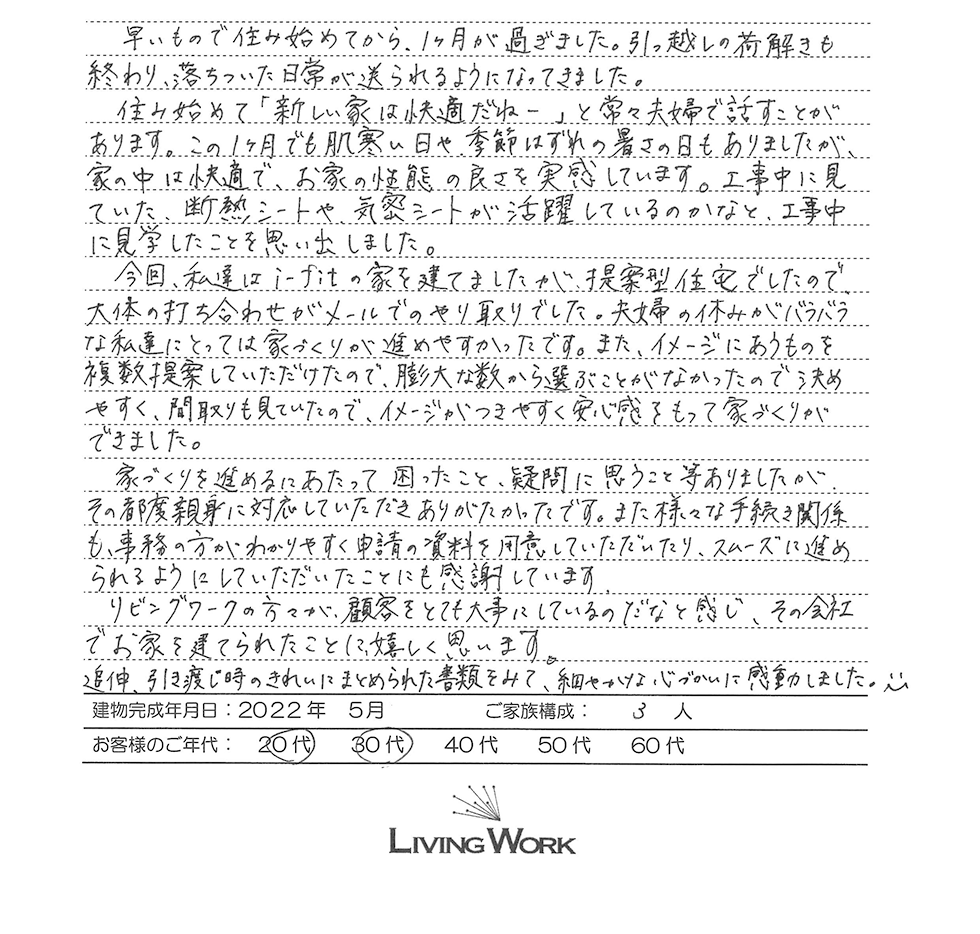 早いもので住み始めてから、1ヶ月が過ぎました。引っ越しの荷解きも
終わり、落ちついた日常が送られるようになってきました。
住み始めて「新しい家は快適だねー」と常々夫婦で話すことが
あります。この1ヶ月でも肌寒い日や、季節はずれの暑さの日もありましたが、
家の中は快適で、お家の性能の良さを実感しています。工事中に見
ていた、断熱シートや、気密シートが活躍しているのかなと、工事中
に見学したことを思い出しました。
今回、私達はi-fitの家を建てましたが、提案型住宅でしたので、
大体の打ち合わせがメールでのやり取りでした。夫婦の休みがバラバラ
な私達にとっては家づくりが進めやすかったです。また、イメージにあうものを
複数提案していただけたので、膨大な数から選ぶことがなかったので決め
やすく、間取りも見ていたので、イメージがつきやすく安心感をもって家づくりが
できました。
家づくりを進めるにあたって困ったこと、疑問に思うこと等ありましたが、
その都度親身に対応していただきありがたかったです。また様々な手続き関係
も、事務の方がわかりやすく申請の資料を用意していただいたり、スムーズに進め
られるようにしていただいたことにも感謝しています。
リビングワークの方々が、顧客をとても大事にしているのだなと感じ、その会社
でお家を建てられたことに、嬉しく思います。
追伸、引き渡し時のきれいにまとめられた書類をみて、細やかな心づかいに感動しました。
建物完成年月日：2022年 5月 ご家族構成： 3 人
お客様のご年代： 20代 30代 40代 50代 60代
LIVINGWORK